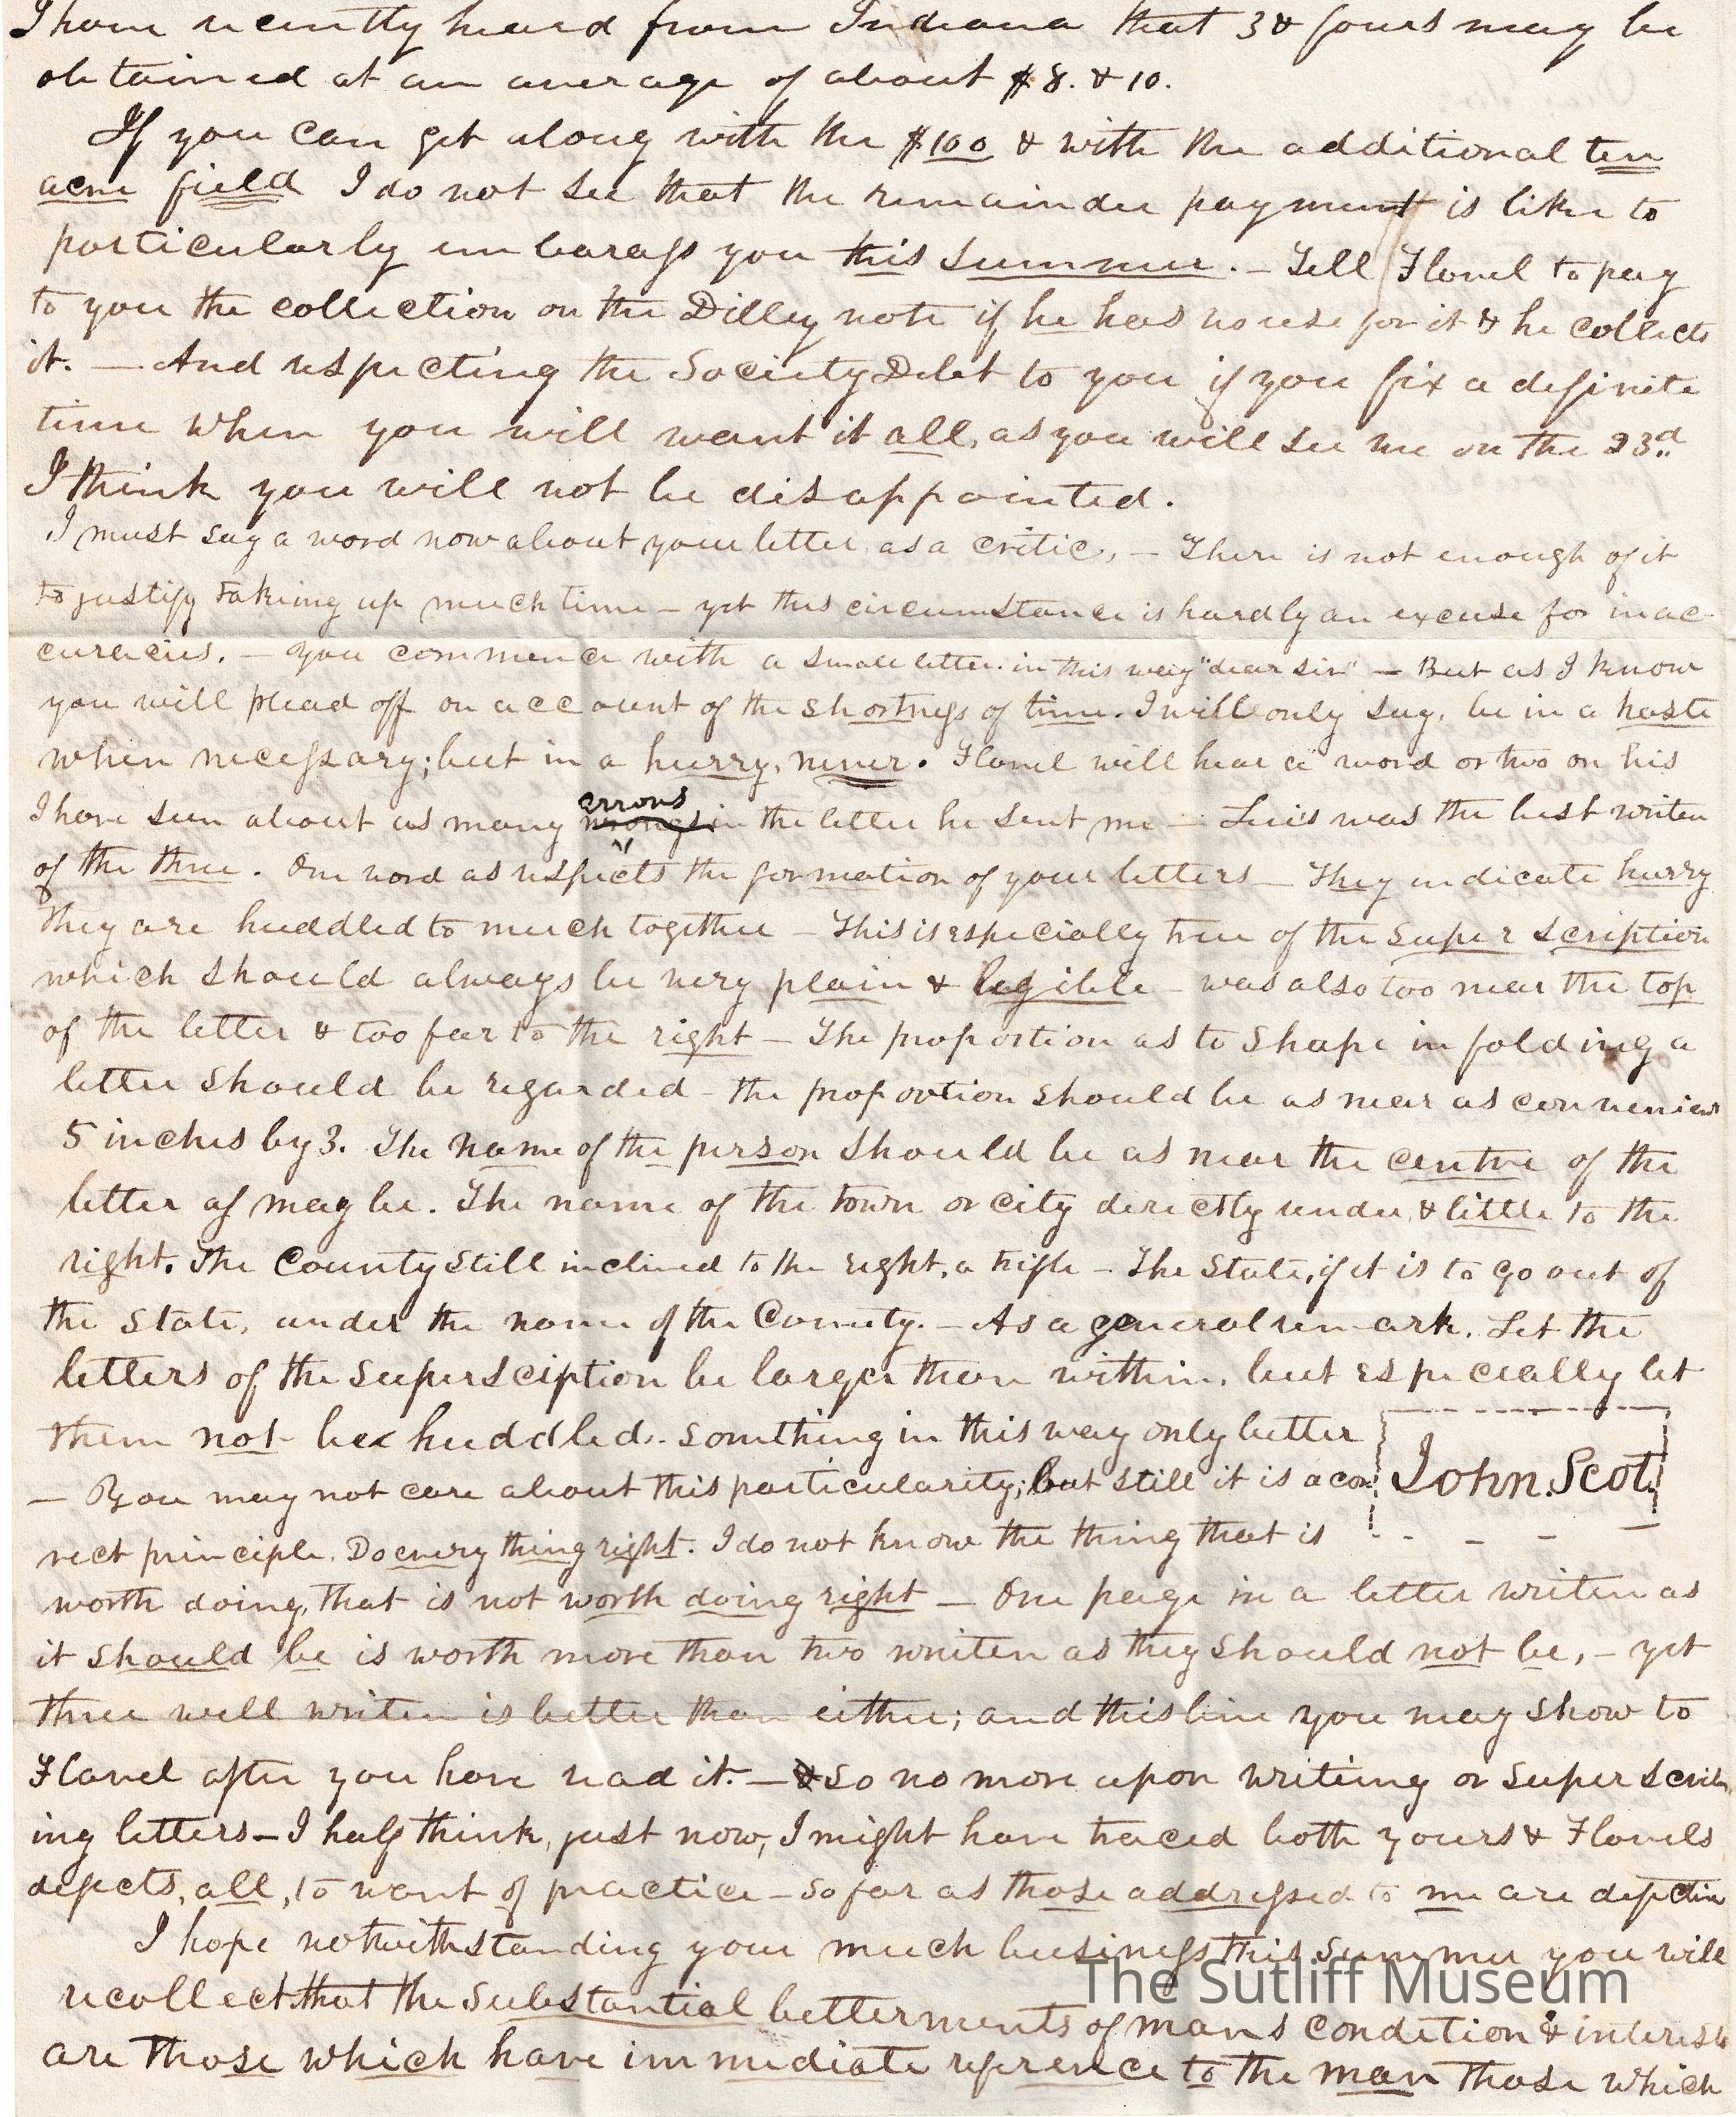 I have recently heard from Indiana that 3 & fours may be
obtained at an average of about $8. & 10.
If you can get along with the $100 & with the additional ten
acre field I do not see that the remainder payment is like to
particularly embarass you this summer. - Tell Flavel to pay
to you the collection on the Dilley note if he has no use for it & he collects
it. - And respecting the Society Debt to you if you fix a definite
time when you will want it all, as you will see me on the 23d
I think you will not be disappointed.
I must say a word now about your letter as a critic, - There is not enough of it
to justify taking up much time - yet this circumstance is hardly an excuse for inac-
curacies. - you commence with a small letter in this way "dear sir" - But as I know
you will plead off on account of the shortness of time. I will only say, be in a haste
when necessary; but in a hurry, never. Flavel will hear a word or two on his
errors
I have seen about as many wrongs in the letter he sent me - Levi's was the best writen
of the three. One word as respects the formation of your letters - They indicate hurry
they are huddled to much together - This is especially true of the super scription
which should always be very plain & legible - was also too near the top
of the letter & too far to the right - The proportion as to shape in folding a
letter should be regarded - the proportion should be as near as convenient
5 inches by 3. The name of the person should be as near the centre of the
letter as may be. The name of the town or city directly under, & little to the
right. The County still inclined to the right, a trifle - The State, if it is to go out of
the State, under the name of the County. - As a general remark. Let the
letters of the supersciption be larger than within, but especially let
them not be huddled. Something in this way only better
John. Scot
- You may not care about this particularity; but still it is a cor-
rect principle. Do every thing right. I do not know the thing that is
worth doing, that is not worth doing right - One page in a letter writen as
it should be is worth more than two writen as they should not be, - yet
three well writen is better than either; and this line you may show to
Flavel after you have read it. - & So no more upon writeing or super scrib
ing letters - I half think, just now, I might have traced both yours & Flavels
defects, all, to want of practice - so far as those addressed to me are defective
I hope notwithstanding your much business this summer you will
recollect that the substantial betterments of mans condition & interests
are those which have immediate reference to the man those which
The Sutliff Museum